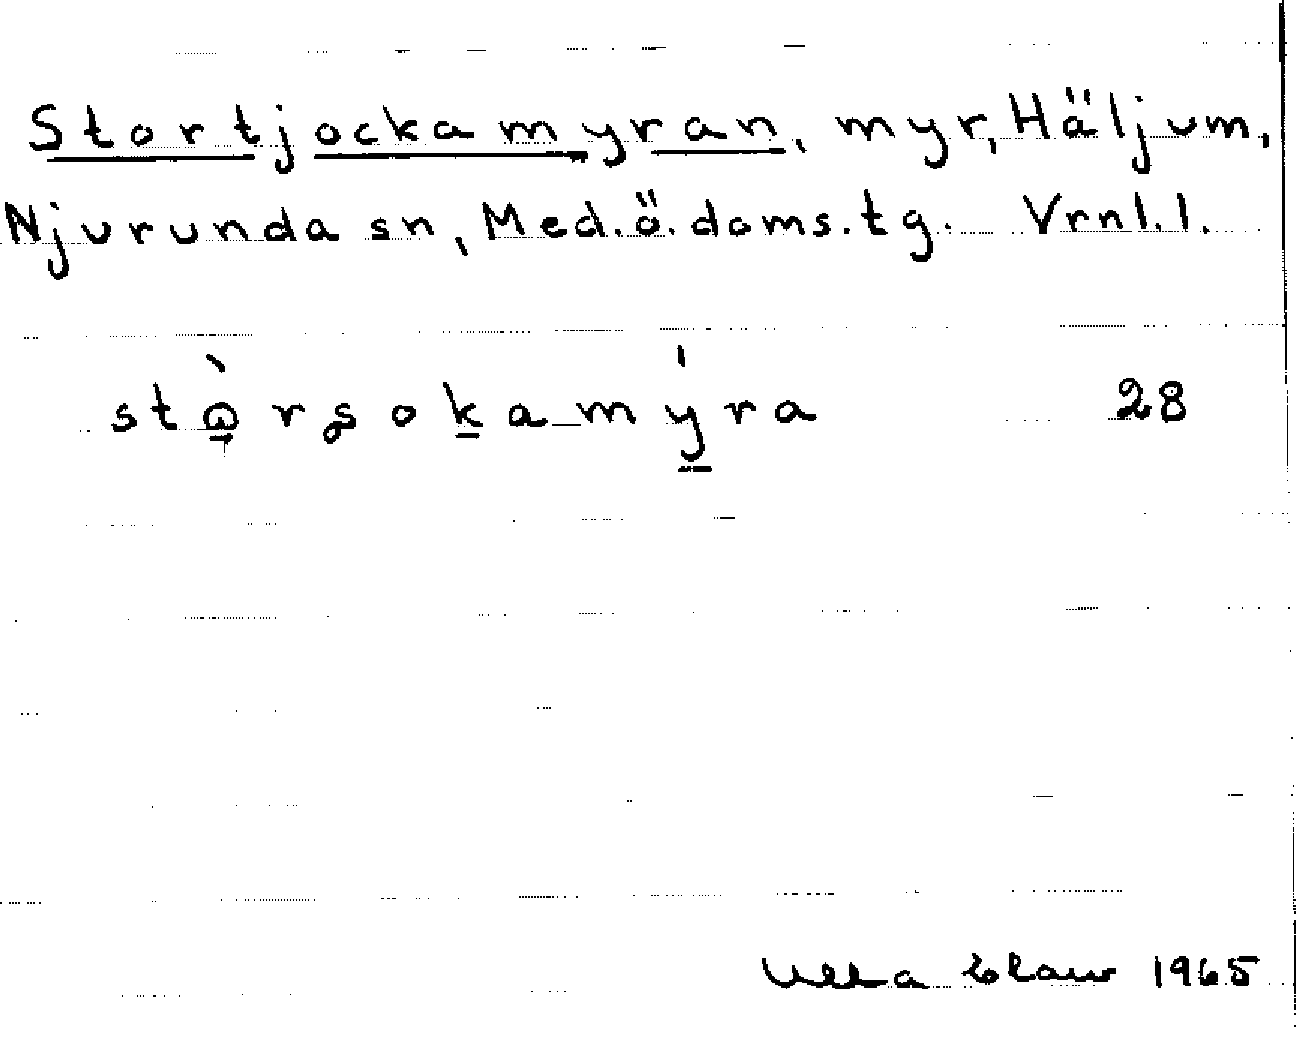 Stortjockamyran, myr, Häljum,
Njurunda sn, Med.ö.doms.tg. Vrnl.l.
28
Ulla 1965